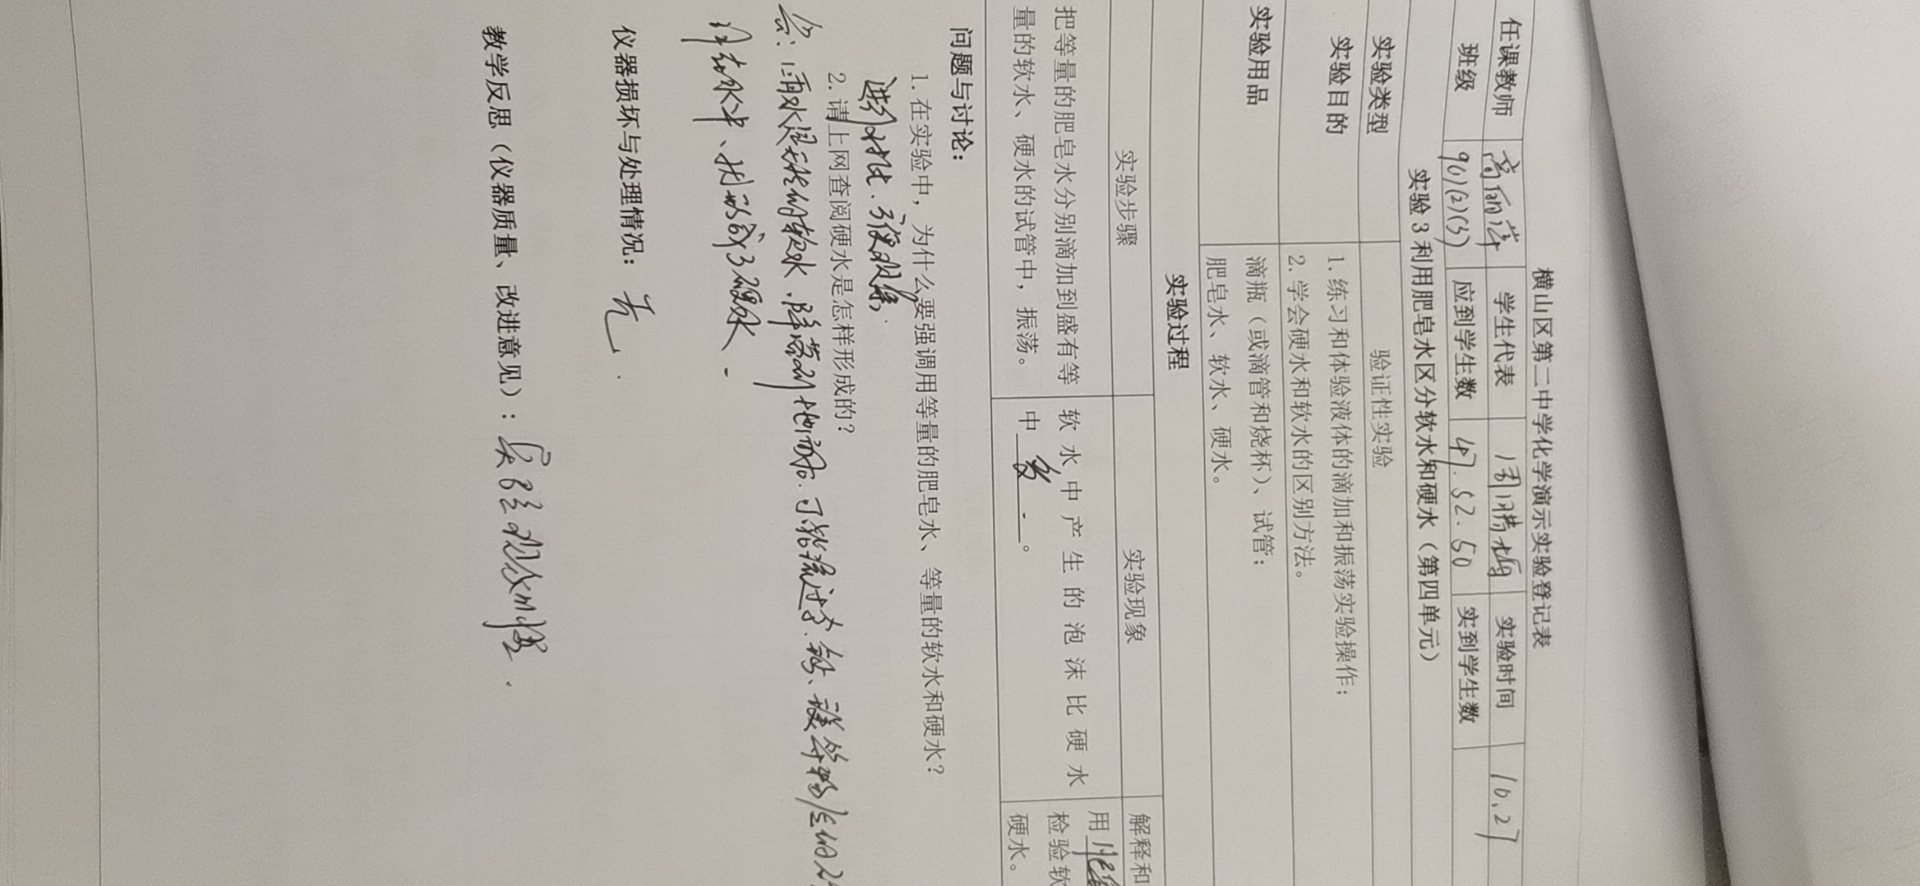 横山区第二中学化学演示实验登记表
任课教师 学生代表 实验时间 10.27
班级 901(2)(3) 应到学生数 47.52.50 实到学生数
实验3 利用肥皂水区分软水和硬水（第四单元）
实验类型 验证性实验
实验目的 1. 练习和体验液体的滴加和振荡实验操作；
2. 学会硬水和软水的区别方法。
实验用品 滴瓶（或滴管和烧杯）、试管；
肥皂水、软水、硬水。
实验过程
实验步骤 实验现象 解释和
把等量的肥皂水分别滴加到盛有等 软水中产生的泡沫比硬水 用
量的软水、硬水的试管中，振荡。 中 多 。 检验软
硬水。
问题与讨论：
1. 在实验中，为什么要强调用等量的肥皂水、等量的软水和硬水？
进行对比.
2. 请上网查阅硬水是怎样形成的？
答：雨水是 软水.降落到地面后.可能流过 钙、镁等
水中、形成了硬水.
仪器损坏与处理情况： 无.
教学反思（仪器质量、改进意见）：